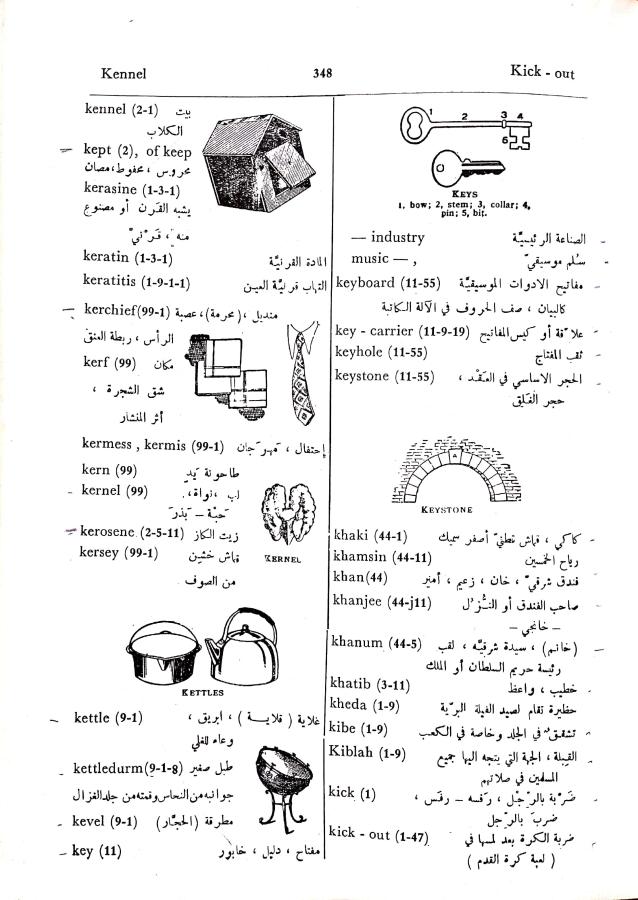 Kennel 348 Kick - out
kennel (2-1) بيت
الكلاب
kept (2), of keep
محروس ، محفوظ ، مصان
kerasine (1-3-1)
يشبه القرن أو مصنوع
منه ، قرني
keratin (1-3-1) المادة القرنية
keratitis (1-9-1-1) التهاب قرنية العين
kerchief(99-1) منديل ، (محرمة)، عصبة
الرأس ، ربطة العنق
kerf (99) مكان
شق الشجرة ،
أثر المنشار
kermess , kermis (99-1) إحتفال ، مهرجان
kern (99) طاحونة يد
kernel (99) لب ، نواة ،
حبة – بذر
KERNEL
kerosene (2-5-11) زيت الكاز
kersey (99-1) قماش خشين
من الصوف
KETTLES
kettle (9-1) غلاية ( قلاية ) ، ابريق ،
وعاء للغلي
kettledurm(9-1-8) طبل صغير
جوانبه من النحاس وقمته من جلد الغزال
kevel (9-1) مطرقة (الحجار)
key (11) مفتاح ، دليل ، خابور
1 2 3 4
5
KEYS
1, bow; 2, stem; 3, collar; 4,
pin; 5, bit.
— industry الصناعة الرئيسية
music — , سلم موسيقي
keyboard (11-55) مفاتيح الادوات الموسيقية
كالبيان ، صف الحروف في الآلة الكاتبة
key - carrier (11-9-19) علاقة أو كيس المفاتيح
keyhole (11-55) ثقب المفتاح
keystone (11-55) الحجر الاساسي في العقد ،
حجر الغلق
A
KEYSTONE
khaki (44-1) كاكي ، قماش قطني أصفر سميك
khamsin (44-11) رياح الخمسين
khan(44) فندق شرقي ، خان ، زعيم ، أمير
khanjee (44-j11) صاحب الفندق أو النزل
– خانجي –
khanum (44-5) (خانم) ، سيدة شرقية ، لقب
رئيسة حريم السلطان أو الملك
khatib (3-11) خطيب ، واعظ
kheda (1-9) حظيرة تقام لصيد الفيلة البرية
kibe (1-9) تشقق في الجلد وخاصة في الكعب
Kiblah (1-9) القبلة ، الجهة التي يتجه اليها جميع
المسلمين في صلاتهم
kick (1) ضربة بالرجل ، رفسه – رفس ،
ضرب بالرجل
kick - out (1-47) ضربة الكرة بعد لمسها في
( لعبة كرة القدم )